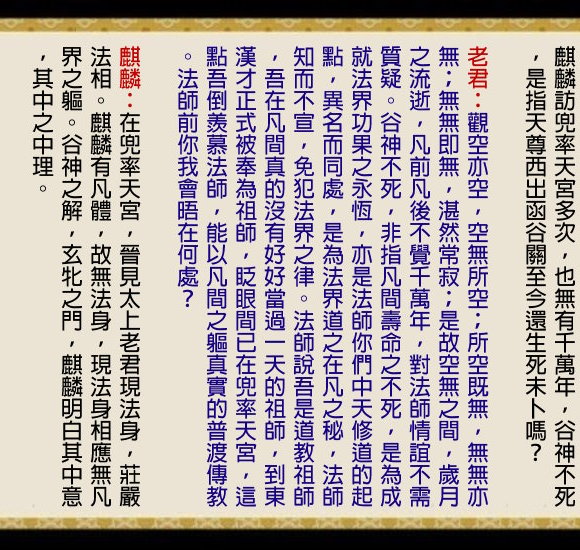 麒麟訪兜率天宮多次，也無有千萬年，谷神不死
，是指天尊西出函谷關至今還生死未卜嗎？
老君：觀空亦空，空無所空；所空既無，無無亦
無；無無即無，湛然常寂；是故空無之間，歲月
之流逝，凡前凡後不覺千萬年，對法師情誼不需
質疑。谷神不死，非指凡間壽命之不死，是為成
就法界功果之永恆，亦是法師你們中天修道的起
點，異名而同處，是為法界道之在凡之秘，法師
知而不宣，免犯法界之律。法師說吾是道教祖師
，吾在凡間真的沒有好好當過一天的祖師，到東
漢才正式被奉為祖師，眨眼間已在兜率天宮，這
點吾倒羨慕法師，能以凡間之軀真實的普渡傳教
。法師前你我會晤在何處？
麒麟：在兜率天宮，晉見太上老君現法身，莊嚴
法相。麒麟有凡體，故無法身，現法身相應無凡
界之軀。谷神之解，玄牝之門，麒麟明白其中意
，其中之中理。